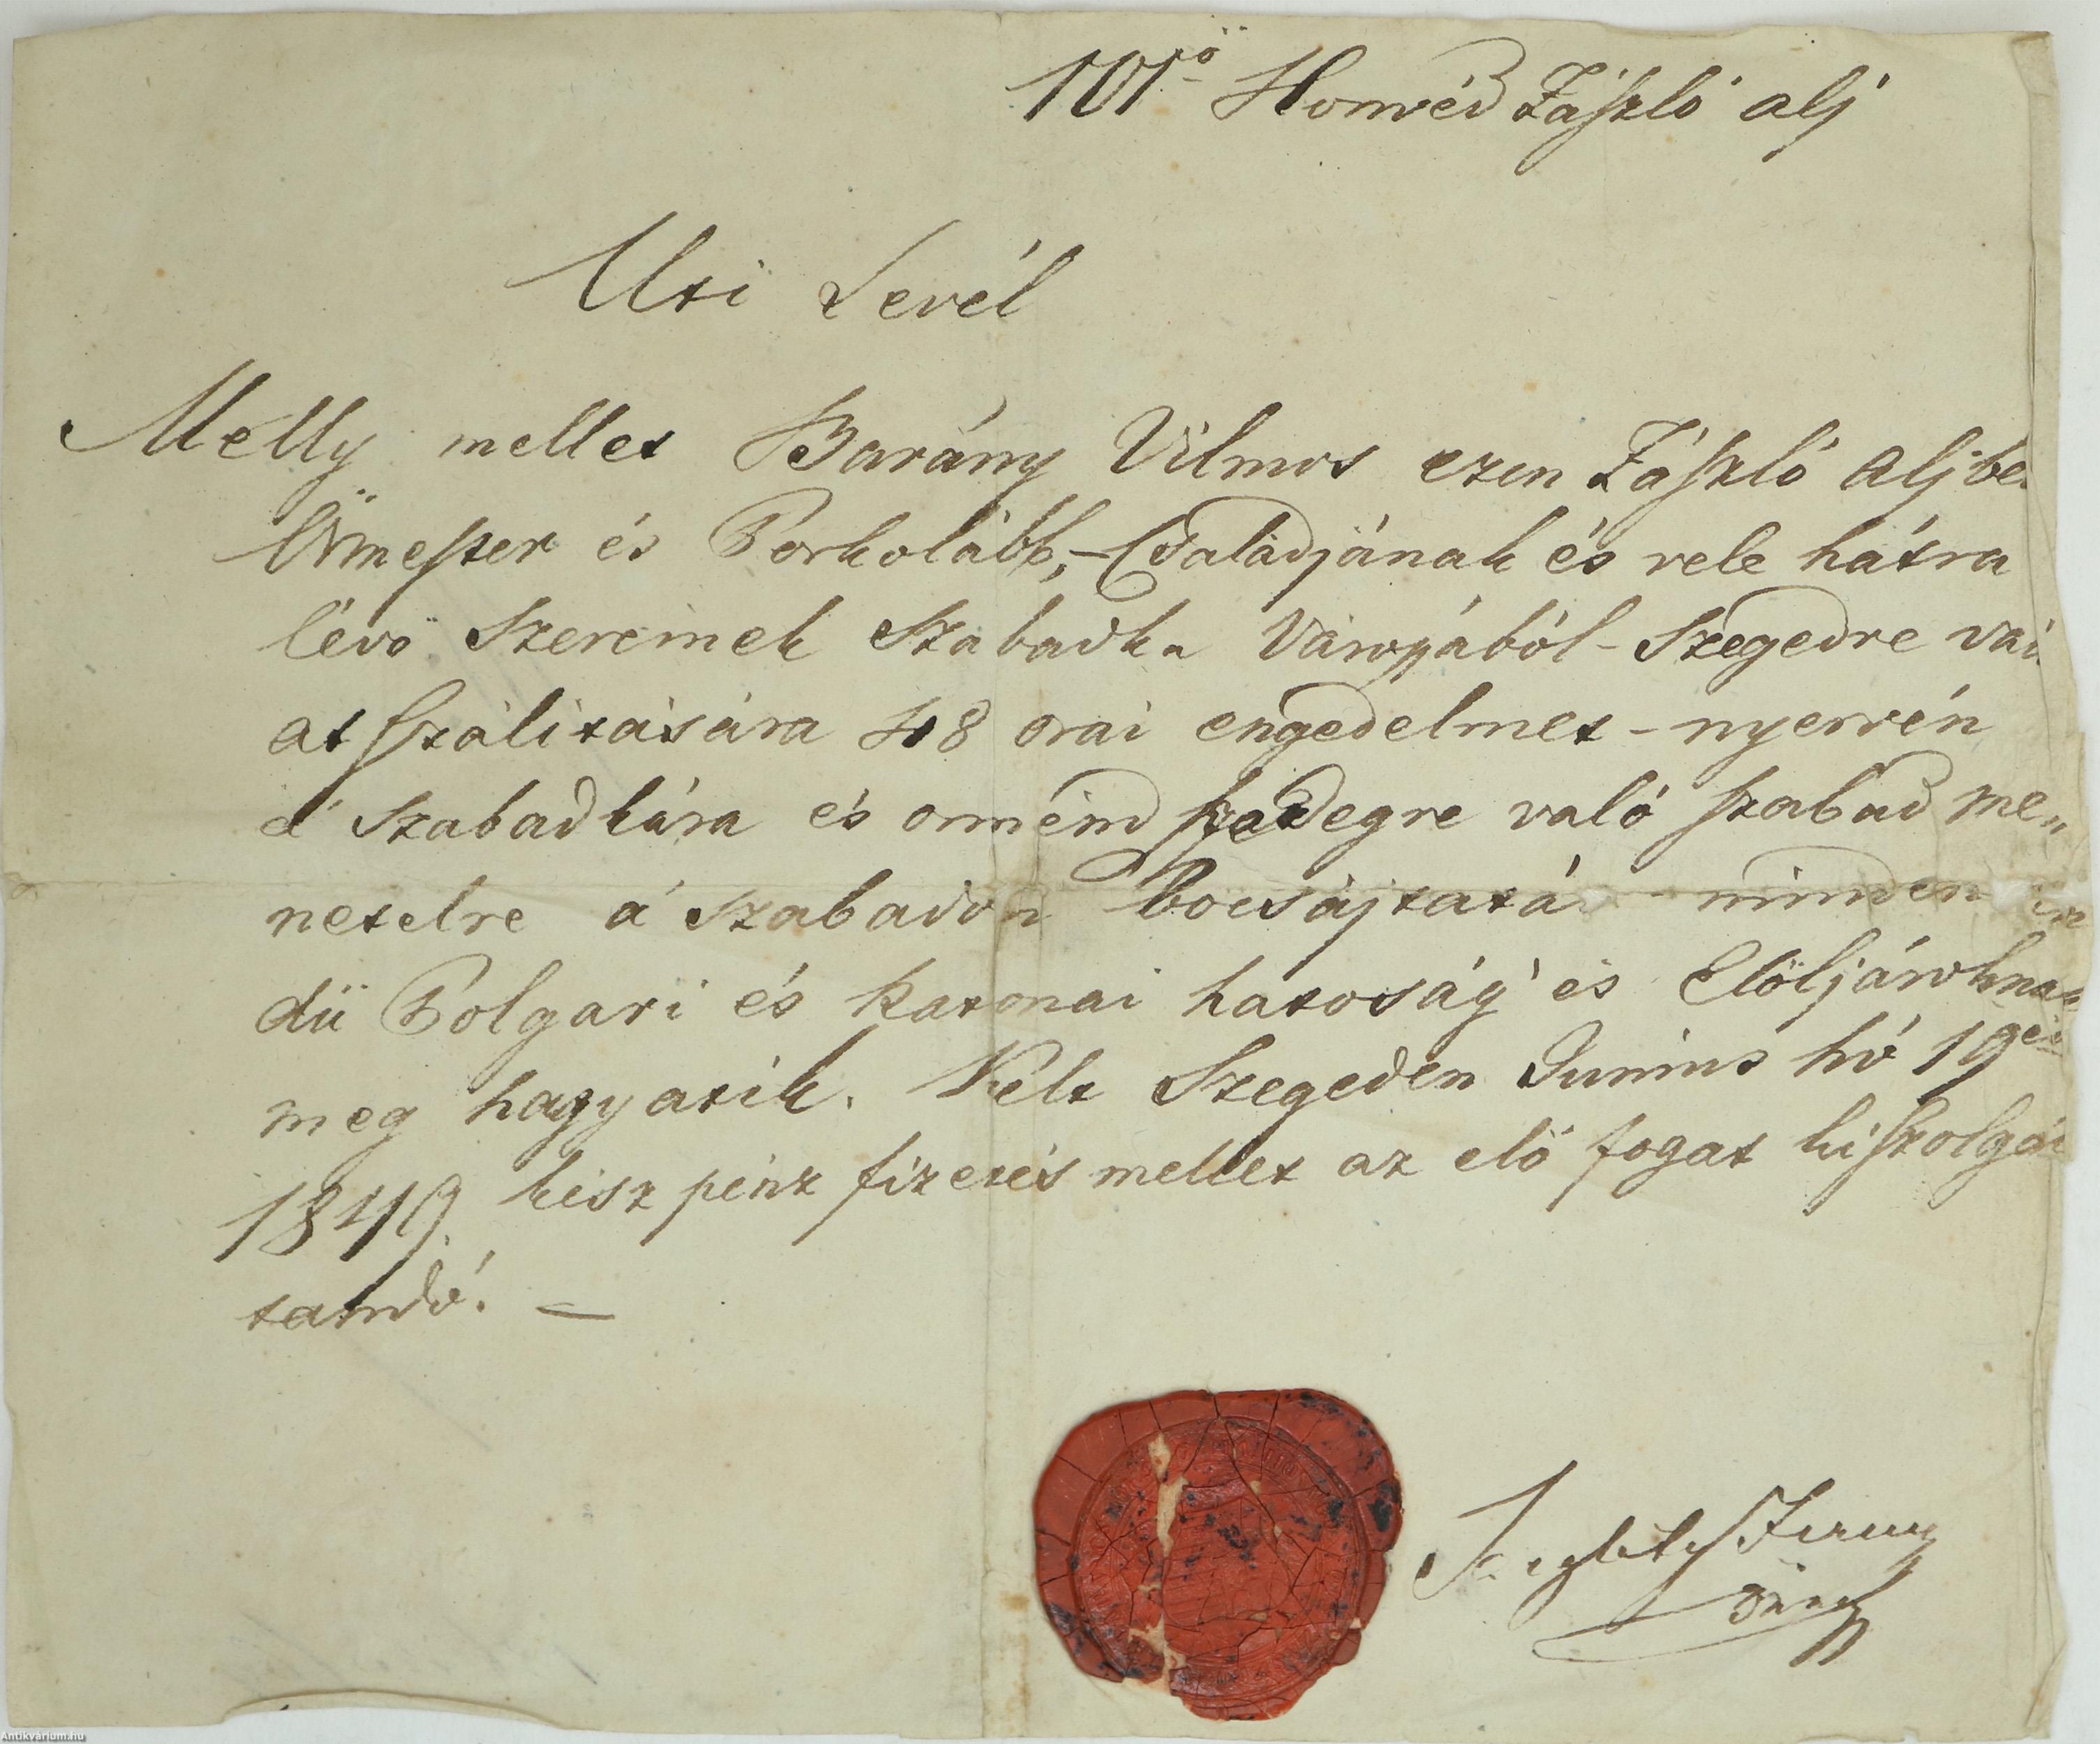 101ö Honvéd Zászló alj
Uti Levél
Melly mellet Barány Vilmos ezen Zászló aljbe
Örmester és Porkolább, – Családjának és vele hátra
lévö Szereinek Szabadka Városából – Szegedre való
át szálitására 48 orai engedelmet – nyervén
á Szabadkára és onnénd való szabad me„
netelre á szabadon bocsájtatás minden
dü Polgari és Katonai hatoság és Elöljároknak
meg hagyatik. Kelt Szegeden Junius hó 19én
1849. kész pénz fizetés mellet az elö fogat kiszolgál
tandó. —
Antikvárium.hu